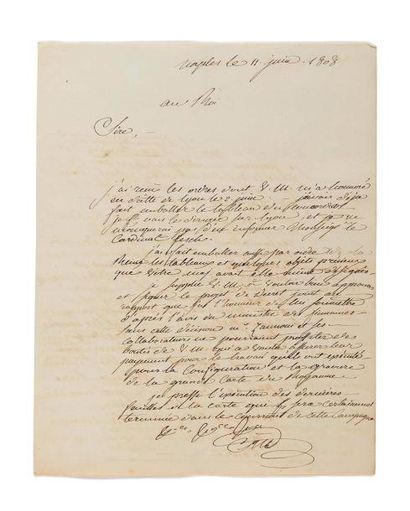 Naples le 11 juin 1808
au Roi
Sire,
j'ai reçu les ordres dont V. M. m'a honoré
en datte de Lyon le 7 juin j'avais déja
fait emballer le tableau du Concordat
par Lyon et je ne
manquerai pas d'en informer Monseig. le
Cardinal fesch.
j'ai fait emballer aussi par ordre de la
Reine les tableaux et quelques objets précieux
que Votre Maj. avait elle même désignés
je supplie V. M. de vouloir bien approuver
et signer le projet de décret joint au
rapport que j'ai l'honneur de lui soumettre
d'après l'avis du ministre des finances
sans cette décision Mr. et ses
collaborateurs ne pourraient profiter des
bontés de V. M. qui a voulu assurer leur
payement pour le travail qu'ils ont exécuté
pour la configuration et la gravure
de la grande Carte du Royaume
je presse l'exécution des dernières
feuilles et la carte sera certainement
terminée dans le courant de cette Campagne